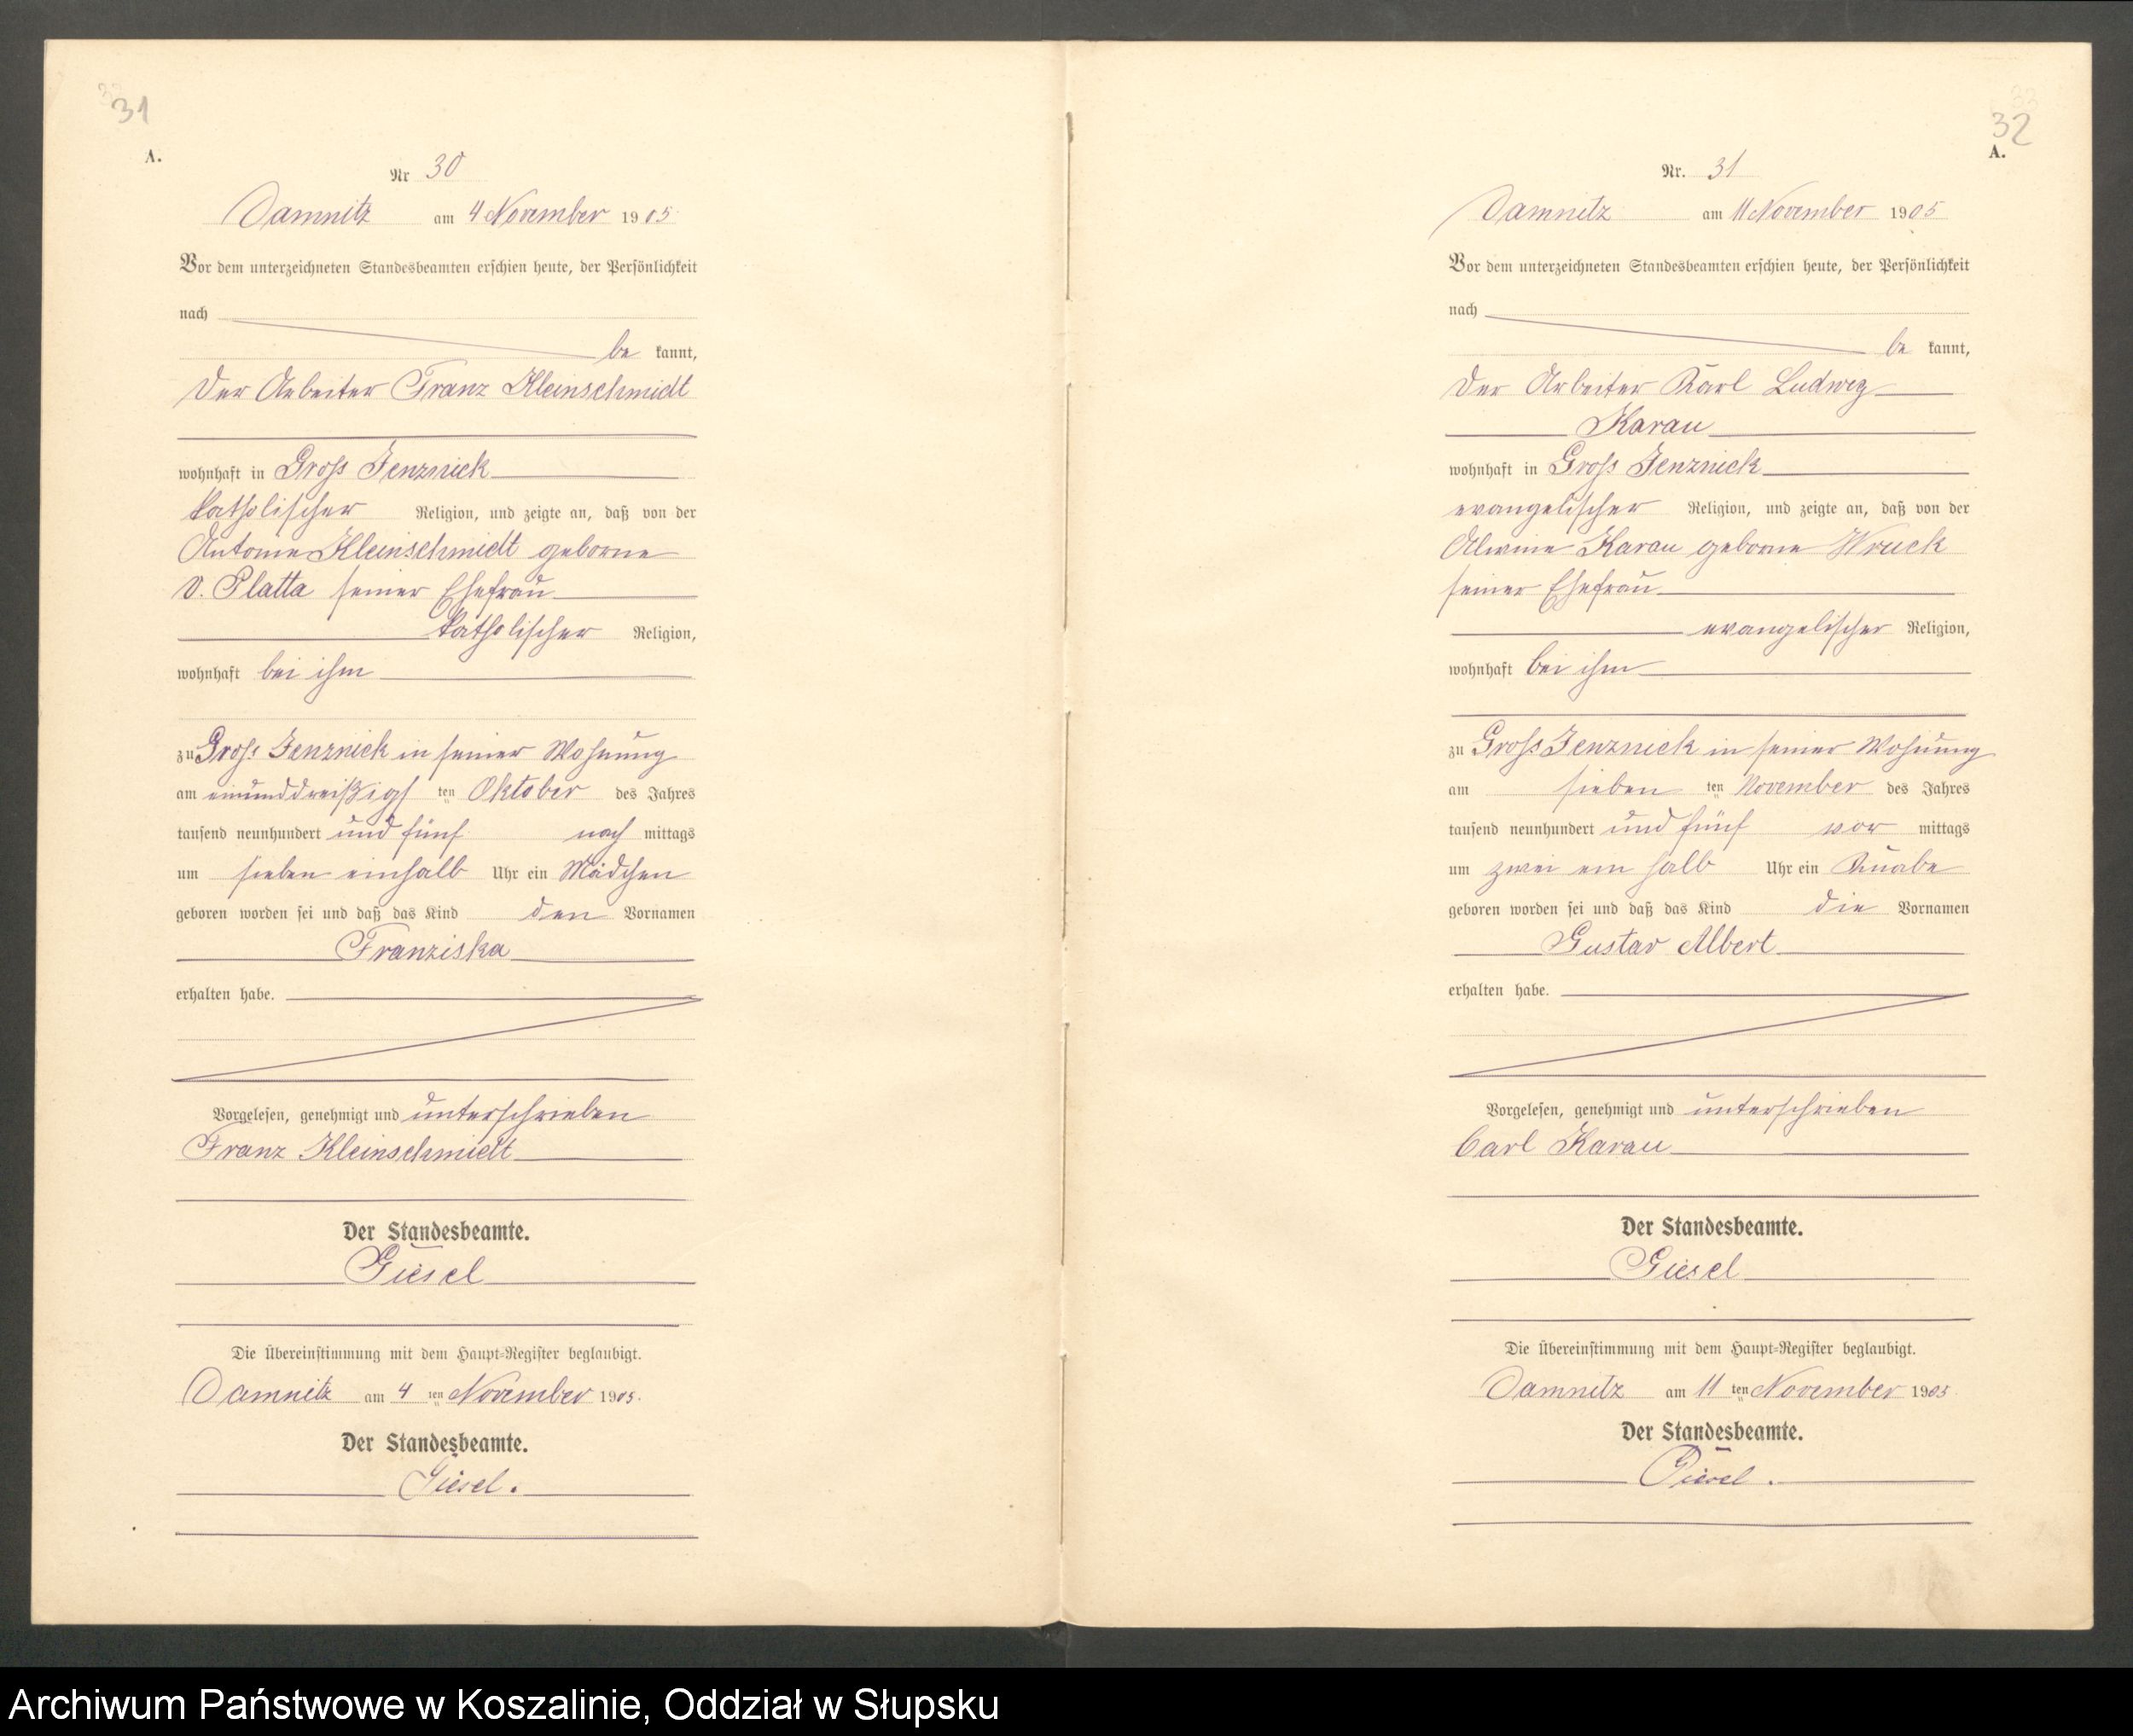 31
A.
Nr 30
Damnitz am 4 November 1905
Vor dem unterzeichneten Standesbeamten erschien heute, der Persönlichkeit
nach
be kannt,
der Arbeiter Franz Kleinschmidt
wohnhaft in Gross Jenznick
katholischer Religion, und zeigte an, daß von der
Antonie Kleinschmidt geborne
v. Platta seiner Ehefrau
katholischer Religion,
wohnhaft bei ihm
zu Gross Jenznick in seiner Wohnung
am einunddreißigsten Oktober des Jahres
tausend neunhundert und fünf nach mittags
um sieben einhalb Uhr ein Mädchen
geboren worden sei und daß das Kind den Vornamen
Franziska
erhalten habe.
Vorgelesen, genehmigt und unterschrieben
Franz Kleinschmidt
Der Standesbeamte.
Giesel
Die Übereinstimmung mit dem Haupt-Register beglaubigt.
Damnitz am 4 ten November 1905.
Der Standesbeamte.
Giesel.
32
A.
Nr. 31
Damnitz am 11 November 1905
Vor dem unterzeichneten Standesbeamten erschien heute, der Persönlichkeit
nach
be kannt,
der Arbeiter Karl Ludwig
Karau
wohnhaft in Gross Jenznick
evangelischer Religion, und zeigte an, daß von der
Alwine Karau geborne Wruck
seiner Ehefrau
evangelischer Religion,
wohnhaft bei ihm
zu Gross Jenznick in seiner Wohnung
am sieben ten November des Jahres
tausend neunhundert und fünf vor mittags
um zwei ein halb Uhr ein Knabe
geboren worden sei und daß das Kind die Vornamen
Gustav Albert
erhalten habe.
Vorgelesen, genehmigt und unterschrieben
Carl Karau
Der Standesbeamte.
Giesel
Die Übereinstimmung mit dem Haupt-Register beglaubigt.
Damnitz am 11 ten November 1905
Der Standesbeamte.
Giesel.
Archiwum Państwowe w Koszalinie, Oddział w Słupsku